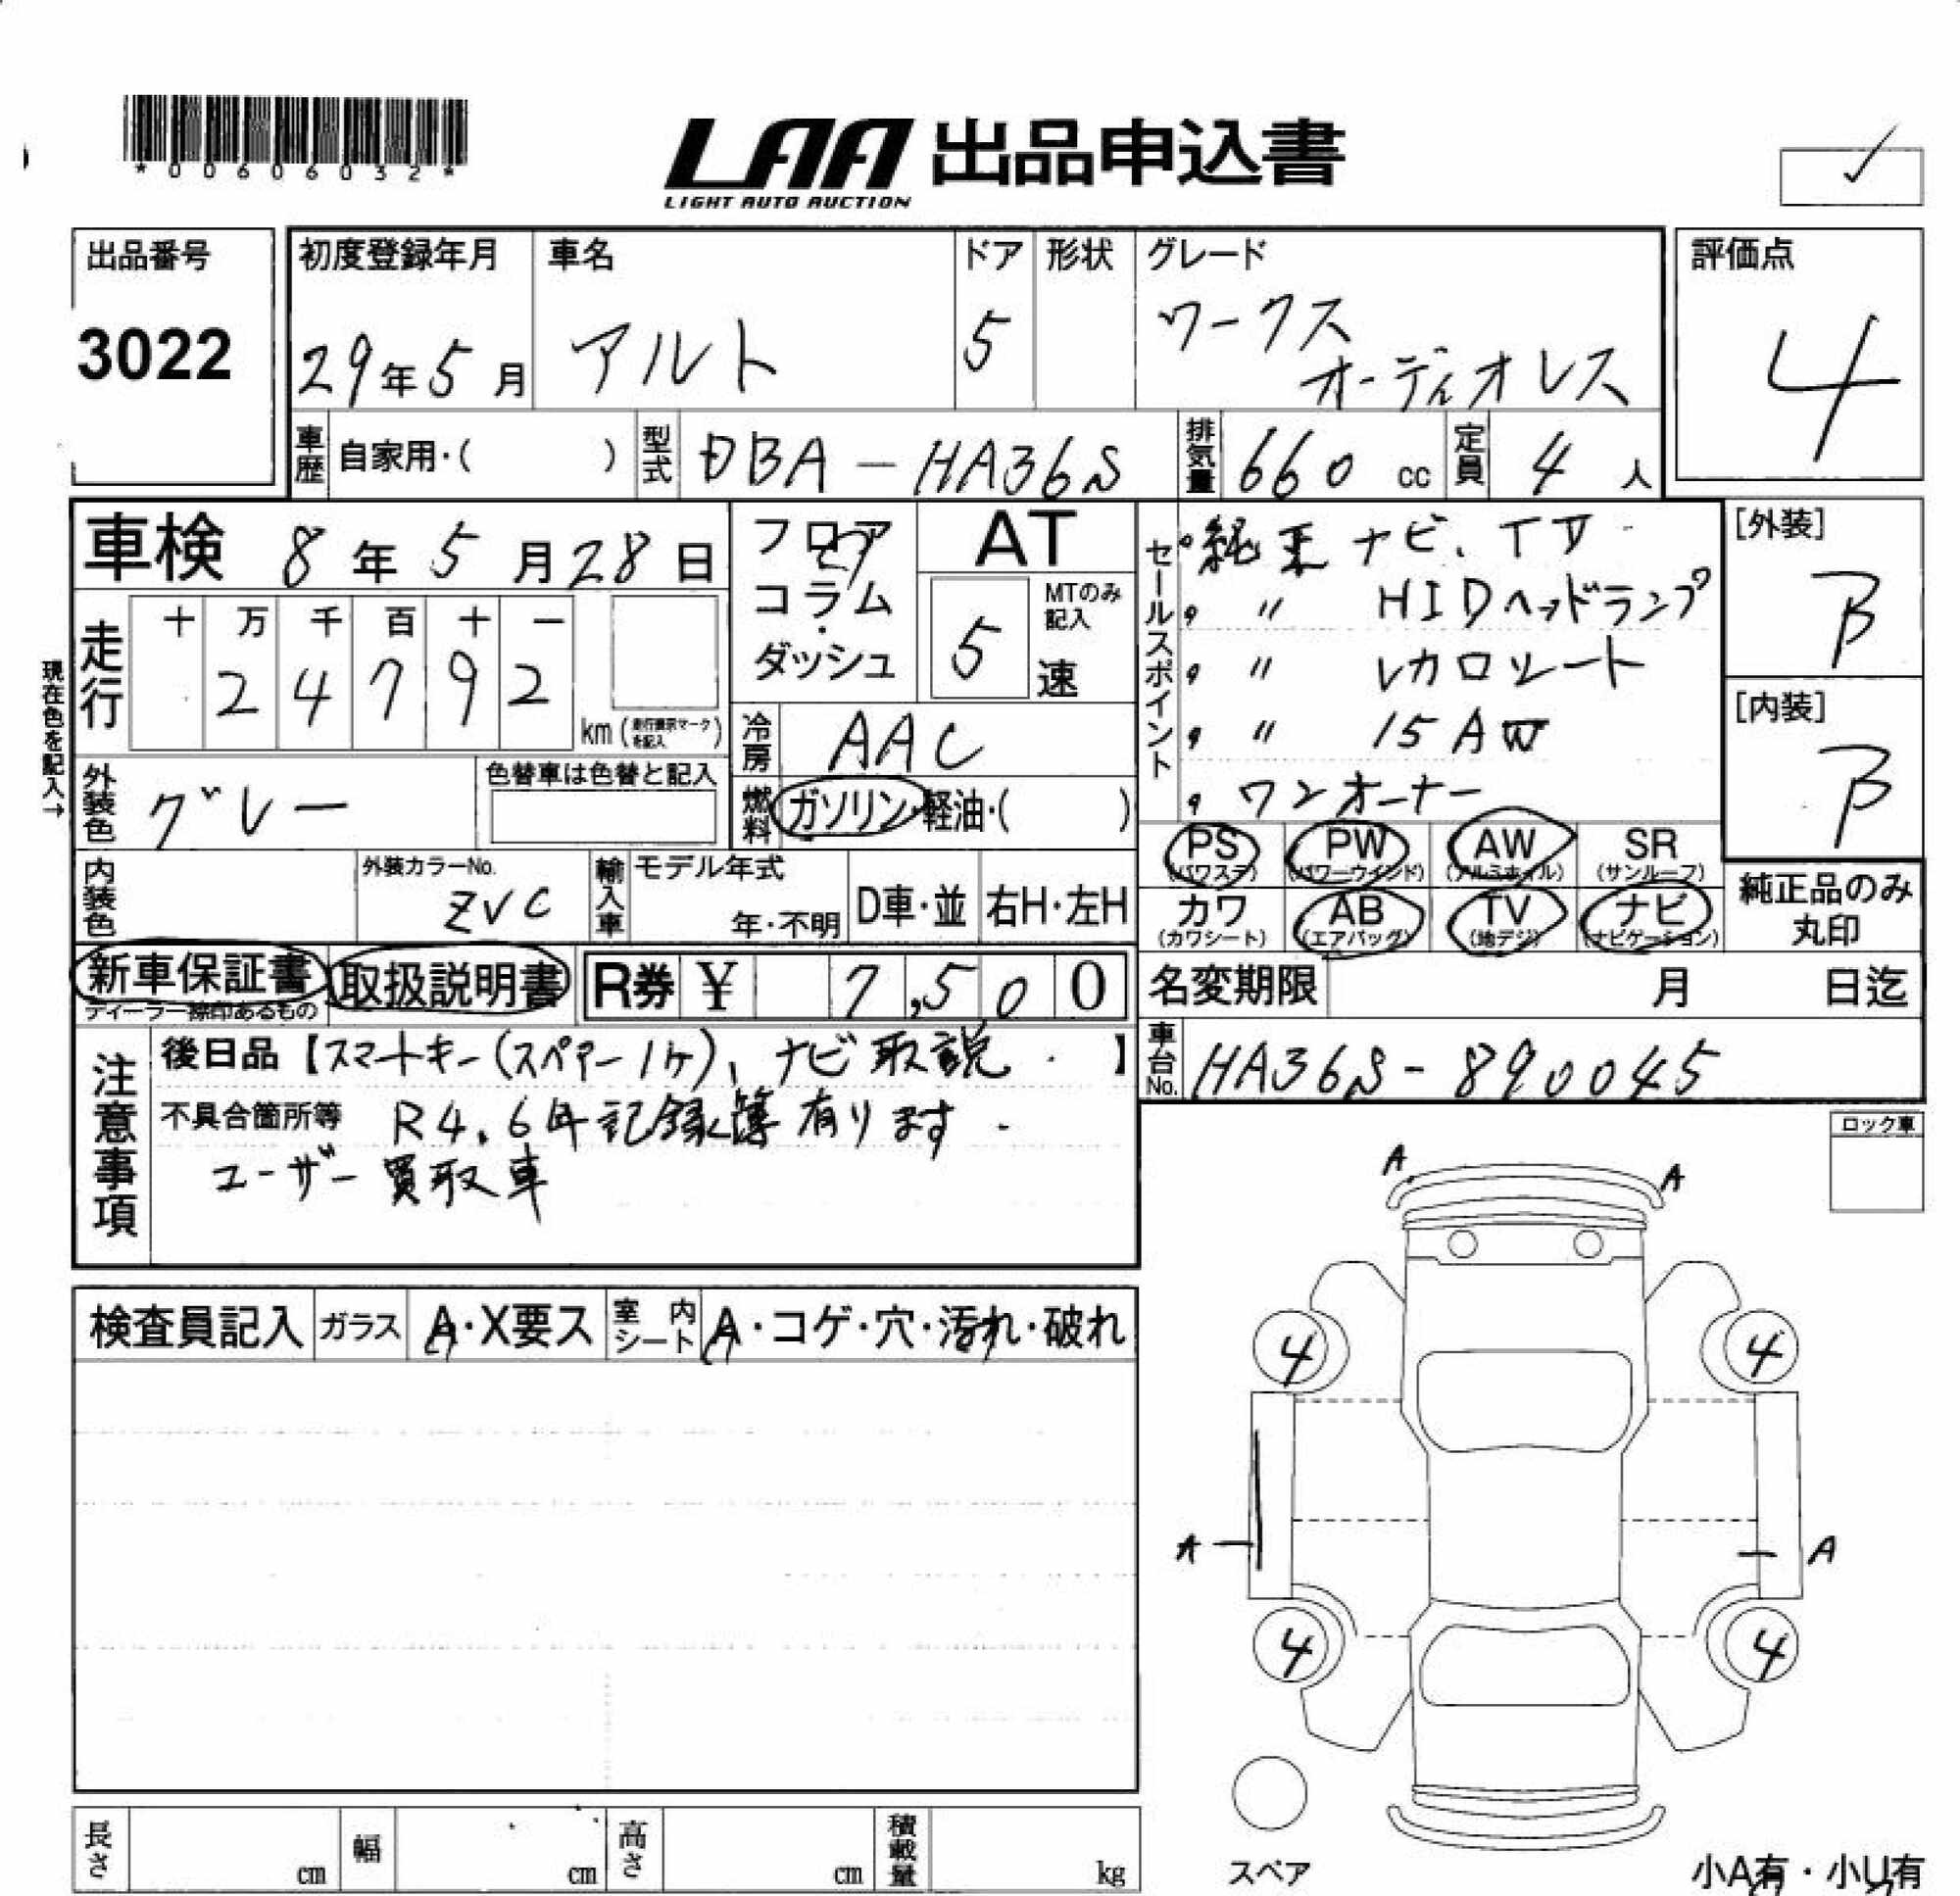 *00606032*
LAA 出品申込書
LIGHT AUTO AUCTION
出品番号
3022
初度登録年月
29年5月
車名
アルト
ドア
5
形状
グレード
ワークス
オーディオレス
評価点
4
車歴 自家用・( )
型式 DBA-HA36S
排気量 660 cc
定員 4 人
車検 8年5月28日
走行
十 万 千 百 十 一
2 4 7 9 2
km(走行表示マークを記入)
現在色を記入→
外装色 グレー
色替車は色替と記入
内装色
外装カラーNo.
ZVC
フロア
コラム
・
ダッシュ
AT
5 速
MTのみ記入
冷房 AAC
燃料 ガソリン・軽油・( )
輸入車
モデル年式
年・不明
D車・並
右H・左H
セールスポイント
純正 ナビ、TV
〃 HIDヘッドランプ
〃 レカロシート
〃 15AW
ワンオーナー
[外装]
B
[内装]
B
PS (パワステ)
PW (パワーウインド)
AW (アルミホイル)
SR (サンルーフ)
カワ (カワシート)
AB (エアバッグ)
TV (地デジ)
ナビ (ナビゲーション)
純正品のみ
丸印
新車保証書
ディーラー捺印あるもの
取扱説明書
R券 ¥ 7,500
名変期限 月 日迄
車台No. HA36S-890045
注意事項
後日品【スマートキー(スペアー1ケ)、ナビ取説 】
不具合箇所等 R4.6年記録簿有ります
ユーザー買取車
ロック車
検査員記入
ガラス A・X要ス
室内シート A・コゲ・穴・汚れ・破れ
A A
4 4
A A
4 4
スペア
小A有・小U有
長さ cm
幅 cm
高さ cm
積載量 kg